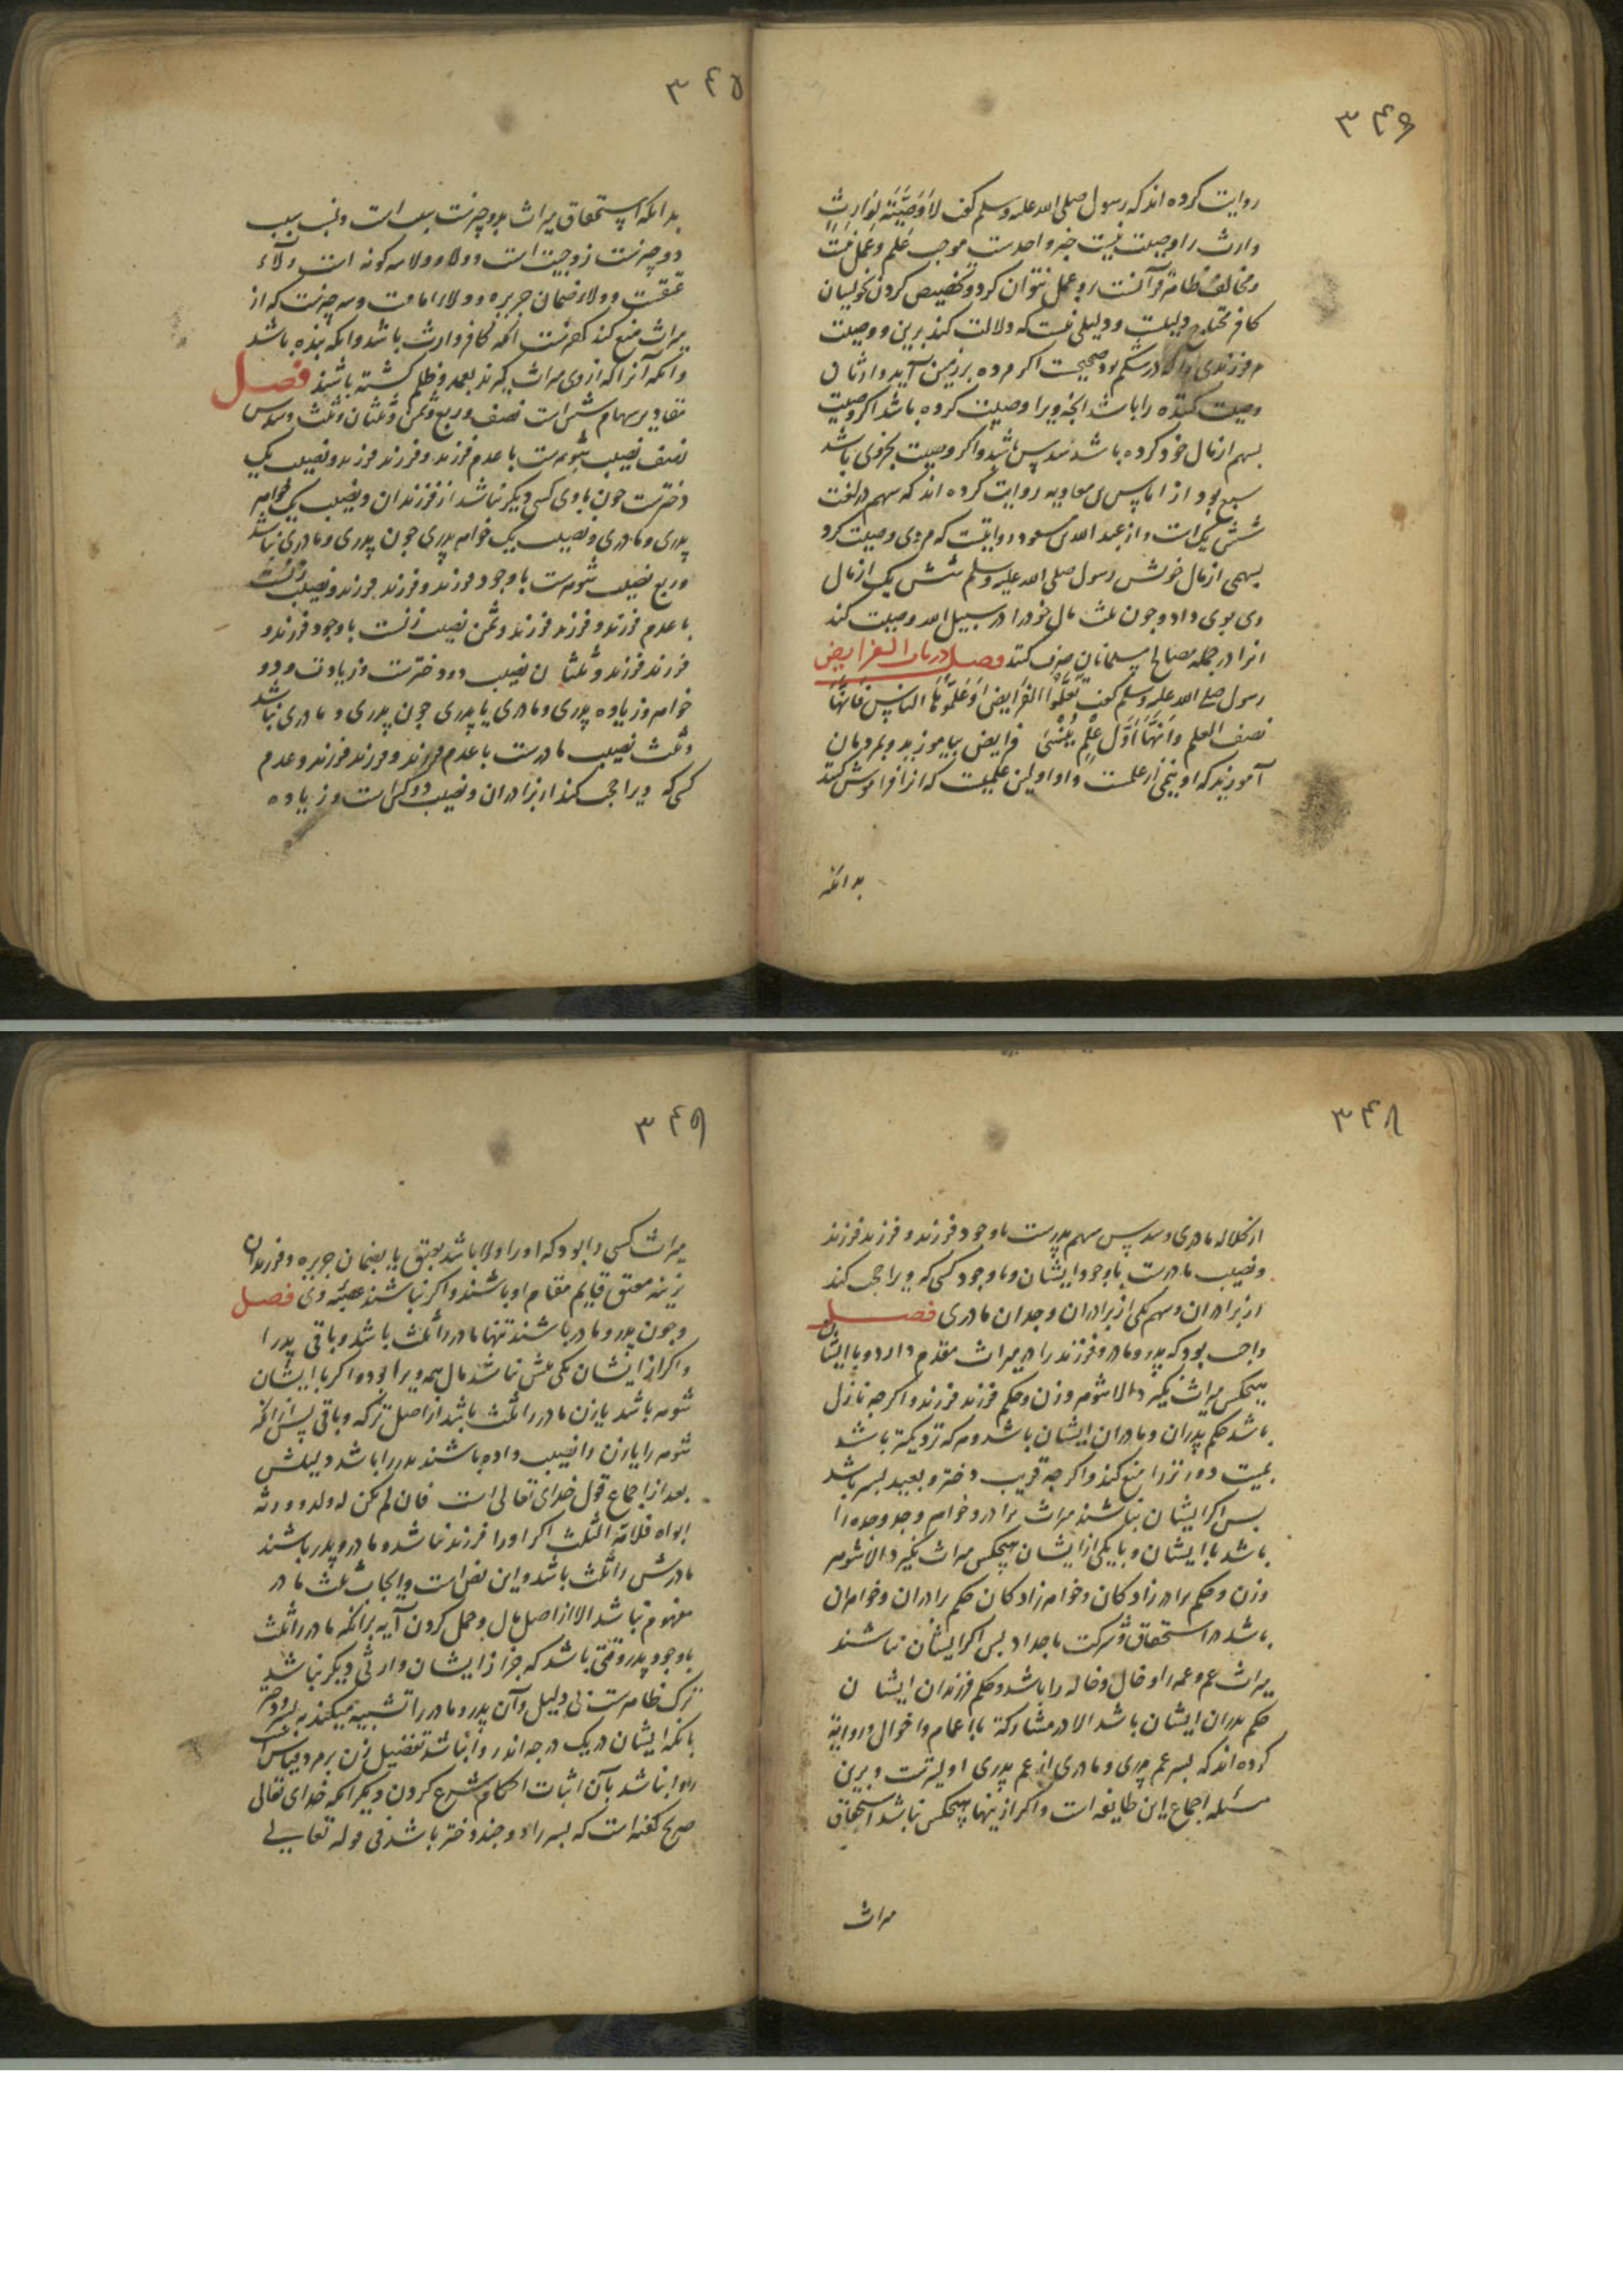 ۳۴۶
روایت کرده اند که رسول صلی الله علیه وسلم گفت لا وَصِیَّتَه لِوَارِثٍ
وارث را وصیت نیست خبر واحدست موجب علم و عمل نیست
و مخالف ظاهر قرآنست بروعمل نتوان کرد و تخصیص کردن بخویشان
کافر محتاج دلیلست و دلیلی نیست که دلالت کند برین و وصیت
مر فرزندی را که در شکم بود صحیحست اگر مرده بر زمین آید وارثان
وصیت کننده را باشد آنچه ویرا وصیت کرده باشد اگر وصیت
بسهم از مال خود کرده باشد سدس باشد و اگر وصیت بجزوی باشد
سبع بود از ایاس بن معاویه روایت کرده اند که سهم در لغت
شش یک است و از عبد الله بن مسعود روایتست که مردی وصیت کرد
بسهمی از مال خویش رسول صلی الله علیه وسلم شش یک از مال
وی بوی داد و چون ثلث مال خود را در سبیل الله وصیت کند
انرا در جمله مصالح مسلمانان صرف کنند فصل در بیان الفرایض
رسول صلی الله علیه وسلم گفت تَعَلَّمُوا الفَرَایِضَ وَعَلِّمُوهَا النَّاسَ فَاِنَّهَا
نصف العلم وَاِنَّهَا اَوَّلُ عِلْمٍ یُنْسَی فرایض بیاموزید و بمردمان
آموزید که او نیمی از علمست و او اولین علمیست که انرا فراموش کنند
بدانکه
۳۴۵
بدانکه استحقاق میراث بدو چیزست بسبب است و نسب سبب
دو چیزست زوجیت است و ولا و ولا سه گونه است ولآء
عتقست و ولاء ضمان جریره و ولاء امامت و سه چیزست که از
میراث منع کند کفرست انکه کافر وارث باشد و انکه بنده باشد
و انکه آنرا که از وی میراث گیرند بعمد و ظلم کشته باشند فصل
مقادیر سهام شش است نصف و ربع و ثمن و ثلثان و ثلث و سدس
نصف نصیب شوهرست با عدم فرزند و فرزند فرزند و نصیب یک
دخترست چون با وی کسی دیگر نباشد از فرزندان و نصیب یک خواهر
پدری و مادری و نصیب یک خواهر پدری چون پدری و مادری نباشد
و ربع نصیب شوهرست با وجود فرزند و فرزند فرزند و نصیب زنست
با عدم فرزند و فرزند فرزند و ثمن نصیب زنست با وجود فرزند و
فرزند فرزند و ثلثان نصیب دو دخترست و زیادت و دو
خواهر و زیاده پدری و مادری یا پدری چون پدری و مادری نباشد
و ثلث نصیب مادرست با عدم فرزند و فرزند فرزند و عدم
کسی که ویرا حجب کند از برادران و نصیب دو کس است و زیاده
۳۴۸
از کلاله مادری و سدس سهم پدرست با وجود فرزند و فرزند فرزند
و نصیب مادرست با وجود ایشان و با وجود کسی که ویرا حجب کند
از برادران و سهم یکی از برادران و جدان مادری فصل
واجب بود که پدر و مادر و فرزند را در میراث مقدم دارد و با ایشان
هیچکس میراث نگیرد الا شوهر و زن و حکم فرزند فرزند و اگر چه نازل
باشد حکم پدران و مادران ایشان باشد و هر که نزدیکتر باشد
بمیت دورتر را منع کند و اگر چه قریب دختر و بعید پسر باشد
پس اگر ایشان نباشند میراث برادر و خواهر و جد و جده را
باشد با ایشان و با یکی از ایشان هیچکس میراث نگیرد الا شوهر
و زن و حکم برادر زادگان و خواهر زادگان حکم برادران و خواهران
باشد در استحقاق و شرکت با جداد پس اگر ایشان نباشند
میراث عم و عمه را و خال و خاله را باشد و حکم فرزندان ایشان
حکم پدران ایشان باشد الا در مشارکة با اعمام و اخوال و روایة
کرده اند که پسر عم پدری و مادری از عم پدری اولیترست و برین
مسئله اجماع این طایفه است و اگر ازینها هیچکس نباشد استحقاق
میراث
۳۴۹
میراث کسی را بود که او را ولا باشد بعتق یا بضمان جریره و فرزندان
نرینه معتق قایم مقام او باشند و اگر نباشند عصبهٔ وی فصل
و چون پدر و مادر باشند تنها مادر را ثلث باشد و باقی پدر را
و اگر از ایشان یکی بیش نباشد مال همه ویرا بود و اگر با ایشان
شوهر باشد یا زن مادر را ثلث باشد از اصل ترکه و باقی پس از انکه
شوهر را یا زن را نصیب داده باشند پدر را باشد دلیلش
بعد از اجماع قول خدای تعالی است فان لم یکن له ولد و ورثه
ابواه فلامّه الثلث اگر او را فرزند نباشد و مادر و پدر باشند
مادرش را ثلث باشد و این نص است و ایجاب ثلث مادر
مفهوم نباشد الا از اصل مال و حمل کردن آیه برانکه مادر را ثلث
با وجود پدر وقتی باشد که جز از ایشان وارثی دیگر نباشد
ترک ظاهرست بی دلیل و آن پدر و مادر را تشبیه میکنند به پسر و دختر
بانکه ایشان در یک درجه اند روا نباشد تفضیل زن بر مرد قیاس است
روا نباشد بآن اثبات احکام شرع کردن و دیگر انکه خدای تعالی
صریح گفته است که پسر را دو چند دختر باشد فی قوله تعالی